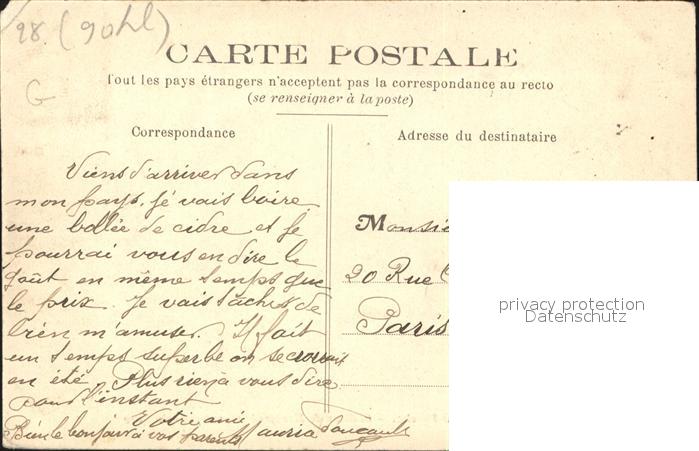 98 (90hl)
G
CARTE POSTALE
Tout les pays étrangers n'acceptent pas la correspondance au recto
(se renseigner à la poste)
Correspondance
Adresse du destinataire
Viens d'arriver dans
mon pays, je vais boire
une bollée de cidre et je
pourrai vous en dire le
goût en même temps que
le prix. Je vais tâcher de
bien m'amuser. Il fait
un temps superbe on se croirait
en été. Plus rien à vous dire
pour l'instant
Votre amie
Bien le bonjour à vos parents Mauria Foucault
Monsie
20 Rue
Paris
privacy protection
Datenschutz